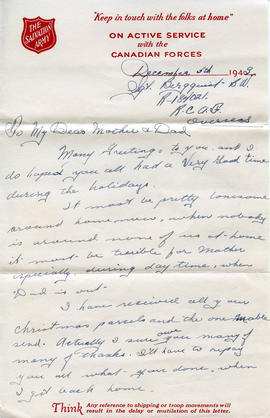 THE
SALVATION
ARMY
"Keep in touch with the folks at home"
ON ACTIVE SERVICE
with the
CANADIAN FORCES
December 5th 1943.
Sgt. Bergquist B.W.
R.C.A.F.
Overseas
To My Dear Mother & Dad
Many Greetings to you, and I
do hoped you all had a Very Good time
during the holidays.
It must be pretty lonesome
around home now, when nobody
is around none of us at home
it must be terrible for Mother
especially during day time, when
Dad is out.
I have received all your
Christmas parcels and the one Mable
send. Actually I sure owe you many of
many of thanks. I'll have to repay
you all what you done, when
I get back home.
Think Any reference to shipping or troop movements will
result in the delay or mutilation of this letter.